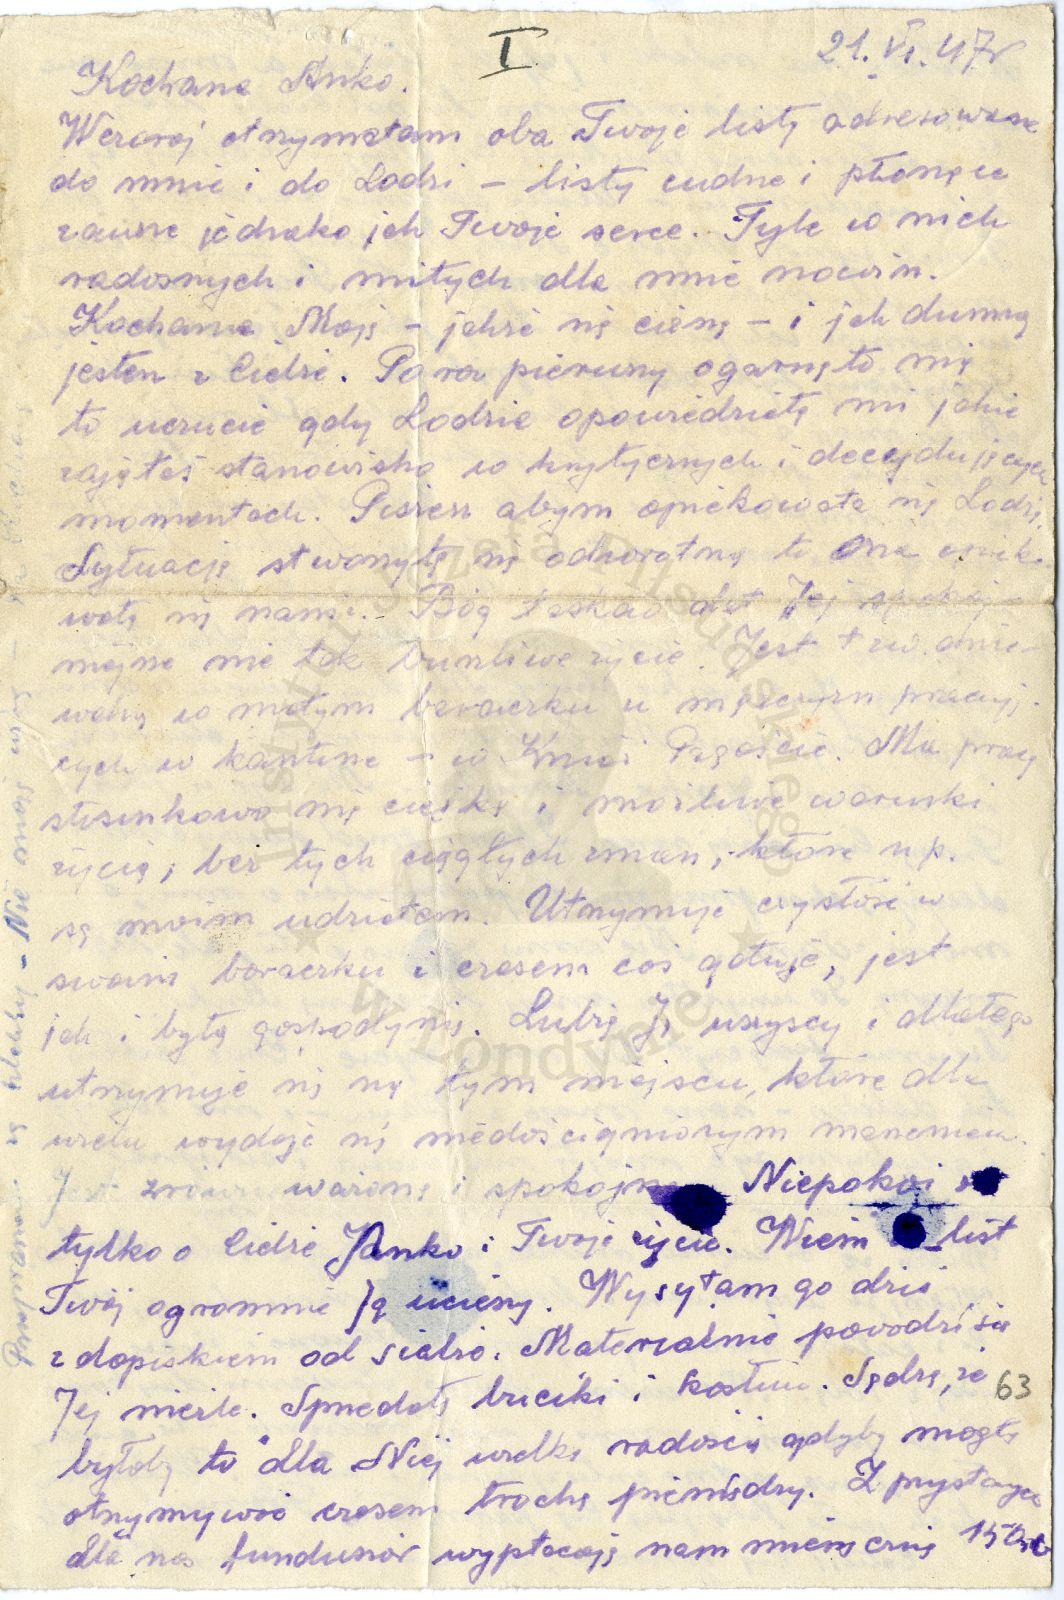 I
21.VI.47r
Kochana Anko.
Wczoraj otrzymałam oba Twoje listy adresowane
do mnie i do Lodzi – listy cudne i płonące
zawsze jednako jak Twoje serce. Tyle w nich
radosnych i miłych dla mnie nowin.
Kochanie Moje – jakże się cieszę – i jak dumną
jestem z Ciebie. Po raz pierwszy ogarnęło mię
to uczucie gdy Lodzia opowiedziała mi jakie
zajęłaś stanowisko w krytycznych i decydujących
momentach. Piszesz abym opiekowała się Lodzią.
Sytuacja stworzyła się odwrotna to Ona opieko-
wała się nami. Bóg łaskaw dał Jej spokoj-
niejsze nie tak burzliwe życie. Jest t zw. dnie-
walną w małym baraczku u mężczyzn pracują-
cych w kantine – w Kniaź Pogoście. Ma pracę
stosunkowo nie ciężką i możliwe warunki
życia, bez tych ciągłych zmian, które np.
są moim udziałem. Utrzymuje czystość w
swoim baraczku i czasem coś gotuje, jest
jak i była gospodynią. Lubią Ją wszyscy i dlatego
utrzymuje się na tym miejscu, które dla
wielu wydaje się niedościgniony marzeniem.
Jest zrównoważona i spokojna. Niepokoi się
tylko o Ciebie Janko i Twoje życie. Wiem list
Twój ogromnie Ją ucieszy. Wysyłam go dziś
z dopiskiem od siebie. Materialnie powodzi się
Jej nieźle. Sprzedała buciki i kostium. Sądzę, że
byłoby to dla Niej wielką radością gdyby mogła
otrzymywać czasem trochę pieniędzy. Z
dla nas funduszów wypłacają nam miesięcznie
63
Józefa Piłsudskiego
w Londynie
Instytut
Nie mają